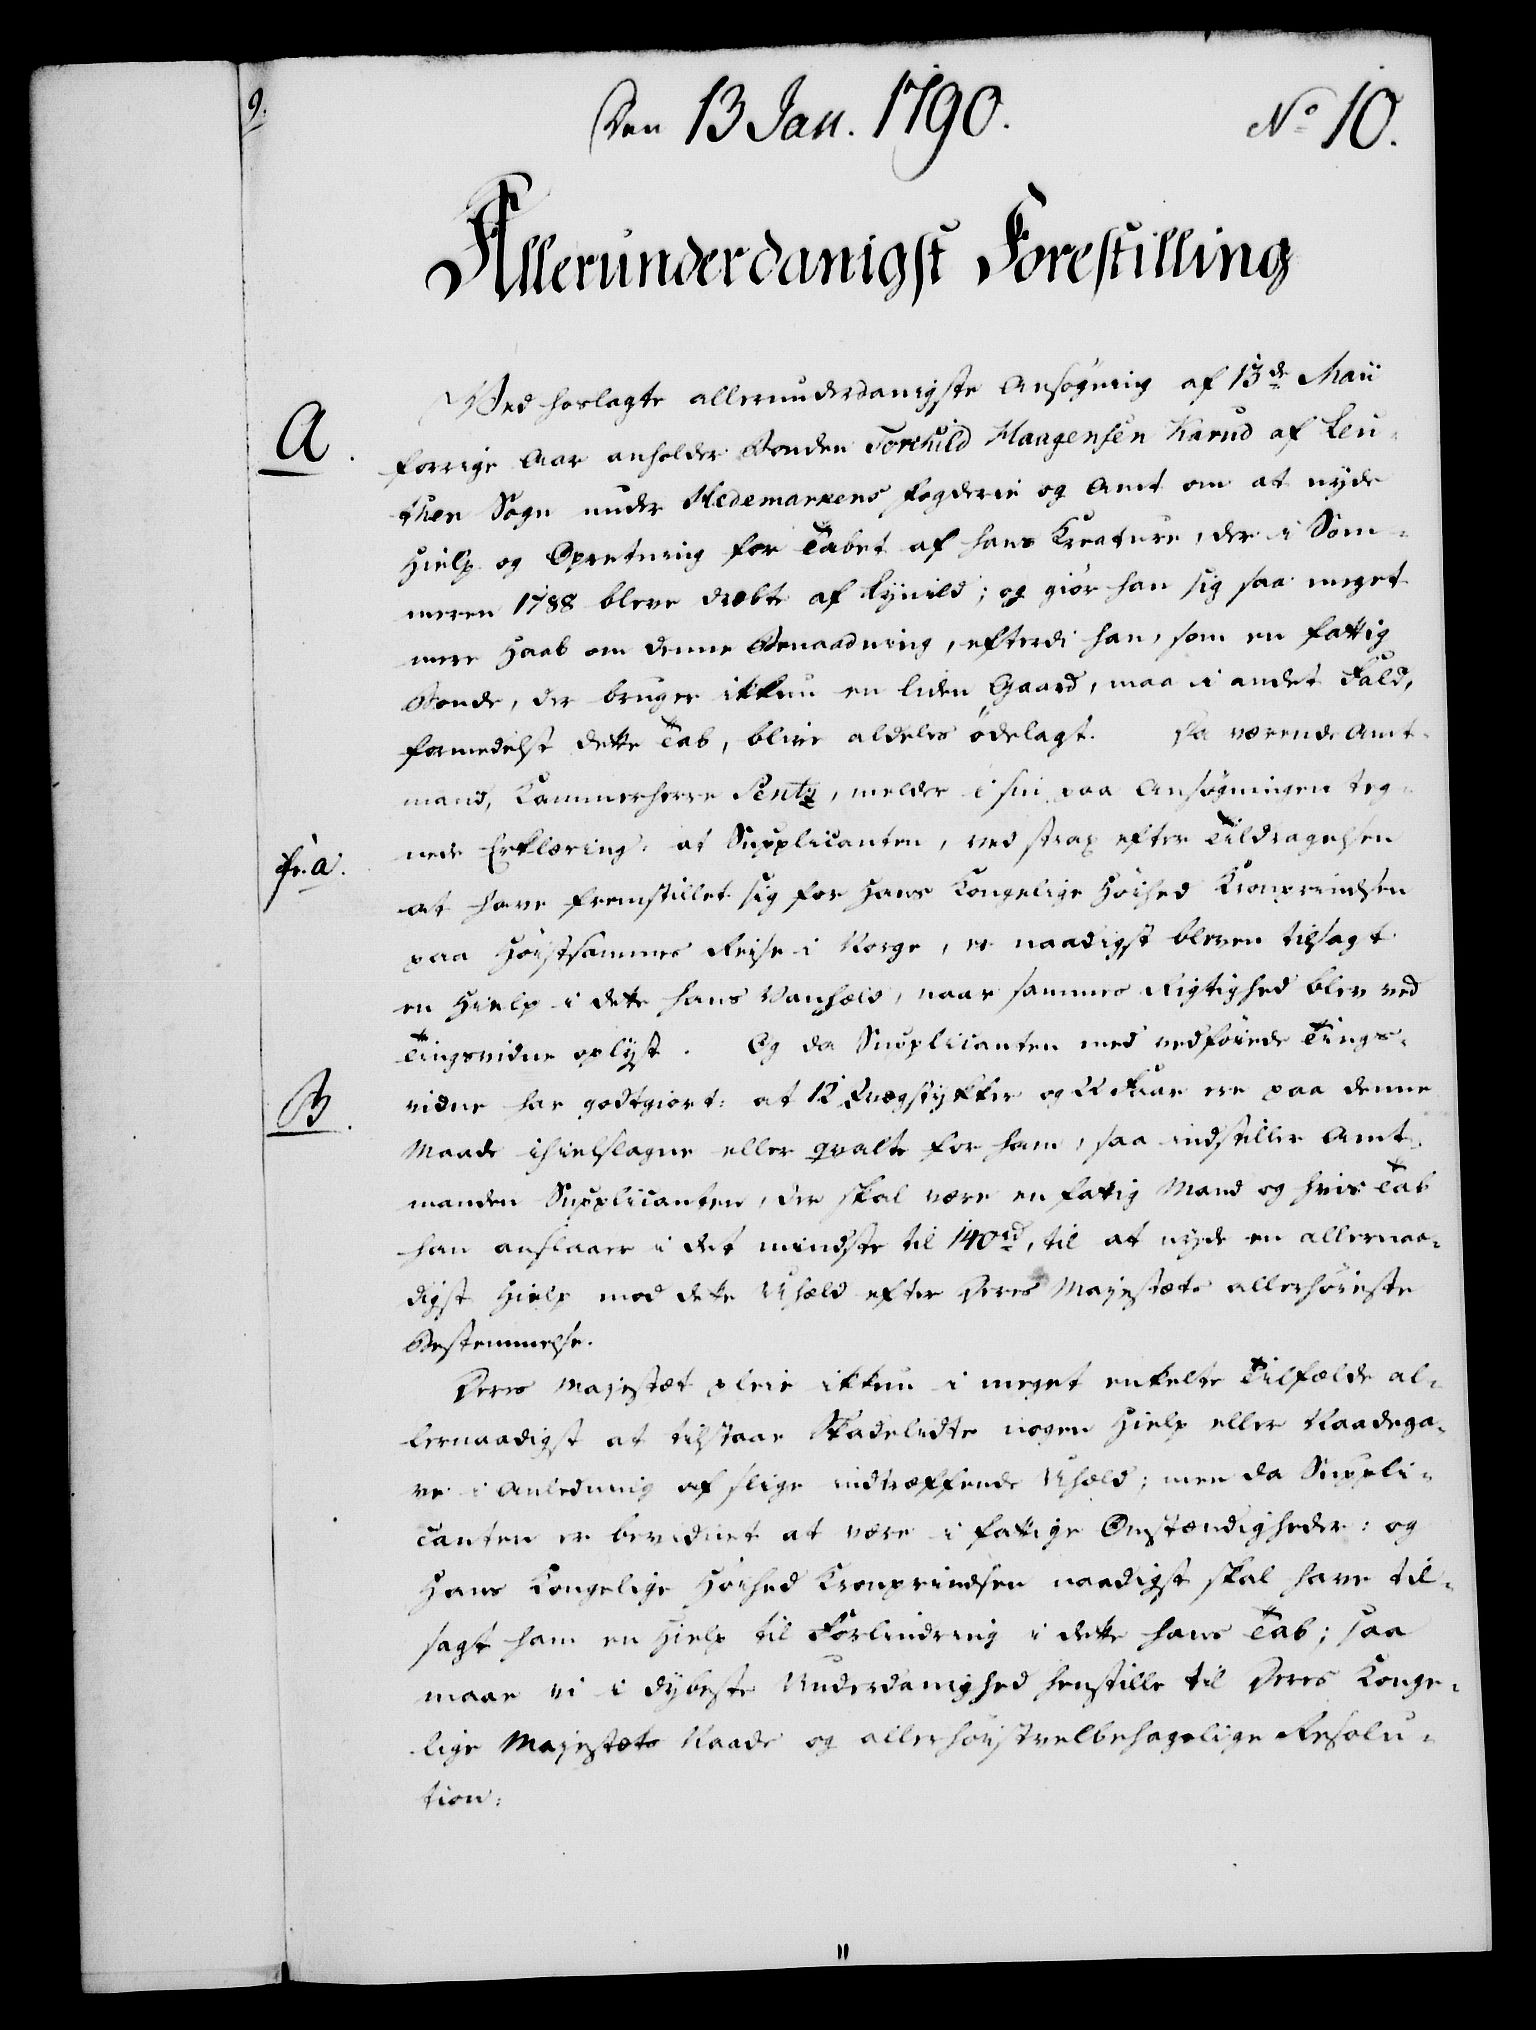 9.
Den 13 Jan. 1790.
No 10.
Allerunderdanigst Forestilling
A.
Ved hoslagte allerunderdanigste Ansøgning af 13de Maii
forrige Aar anholder Bonden Torchild Haagensen Karud af Leu-
then Sogn under Hedemarkens Fogderie og Amt om at nyde
Hielp og Opretning for Tabet af hans Kreature, der i Som-
meren 1788 bleve dræbte af Lynild; og giør han sig saa meget
mere Haab om denne Benaadning, efterdi han, som en fattig
Bonde, der bruger ikkun en liden Gaard, maa i andet Fald,
formedelst dette Tab, blive aldeles ödelagt. Da værende Amt-
mand, Kammerherre Sentz, melder i sin paa Ansøgningen teg-
fr. a.
nede Erklæring: at Supplicanten, ved strax efter Tildragelsen
at have fremstillet sig for Hans Kongelige Höihed Kronprindsen
paa Höistsammes Reise i Norge, er naadigst bleven tilsagt
en Hielp i dette hans Vanheld, naar sammes Rigtighed blev ved
Tingsvidne oplyst. Og da Supplicanten med vedföiede Tings-
B.
vidne har godtgiort: at 12 Qvægstykker og 22 Faar ere paa denne
Maade ihielslagne eller qvalte for ham, saa indstiller Amt-
manden Supplicanten, der skal være en fattig Mand og hvis Tab
han anslaaer i det mindste til 140rd, til at nyde en allernaa-
digst Hielp mod dette Uheld efter Deres Majestæts allerhöieste
Bestemmelse.
Deres Majestæt pleie ikkun i meget enkelte Tilfælde al-
lernaadigst at tilstaae Skadelidte nogen Hielp eller Naadega-
ve i Anledning af slige indtræffende Uheld; men da Suppli-
canten er bevidnet at være i fattige Omstændigheder: og
Hans Kongelige Höihed Kronprindsen naadigst skal have til-
sagt ham en Hielp til Forlindring i dette hans Tab; saa
maae vi i dybeste Underdanighed henstille til Deres Konge-
lige Majestæts Naade og allerhöistvelbehagelige Resolu-
tion:
11